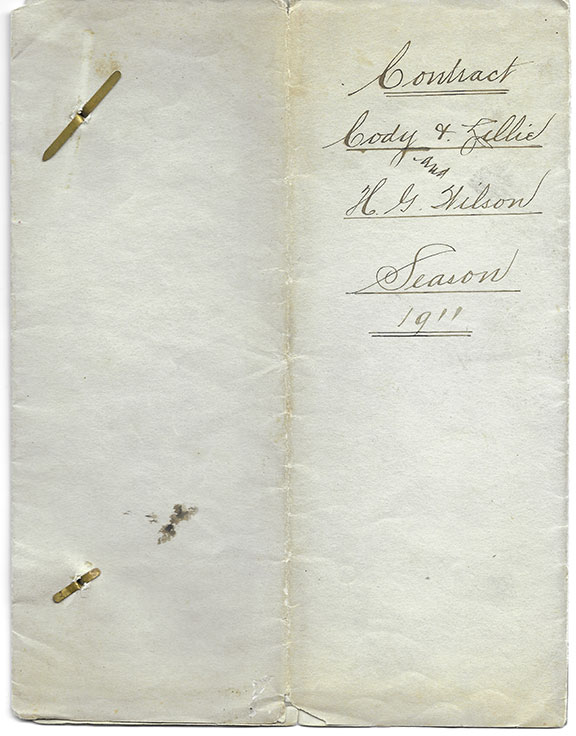 Contract
Cody & Lillie
and
H. G. Wilson
Season
1911